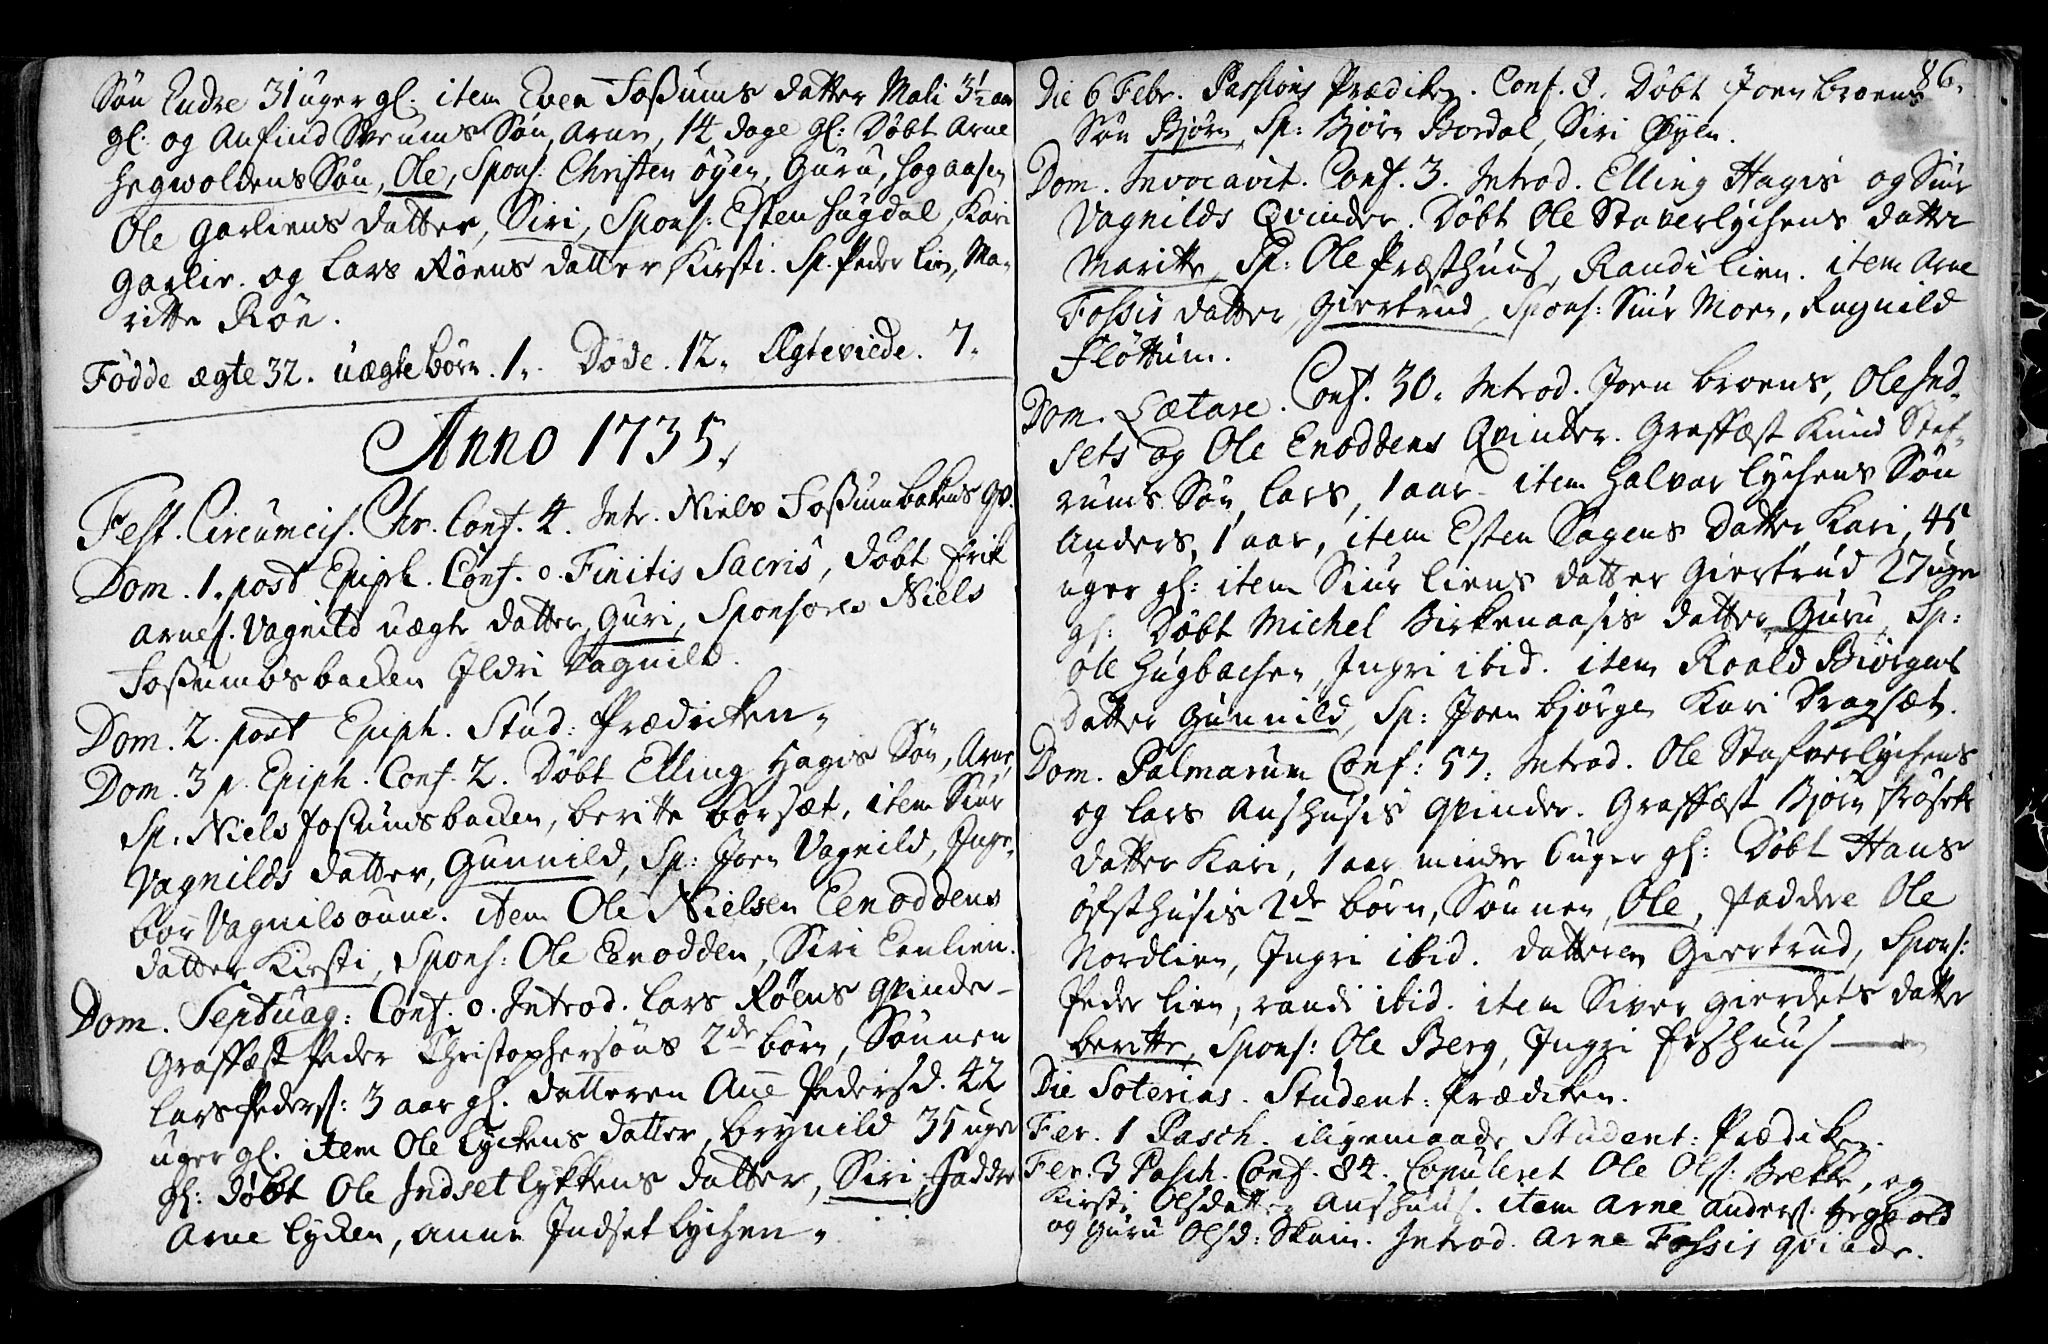 Søn Endre 31 uger gl: item Even Foßums datter Mali 3½ aar
gl: og Anfind Sverums Søn, Arne, 14 dage gl: Døbt Arne
Hegwoldens Søn, Ole, Spons: Christen Øyen, Guru, Hogaasen
Ole Garliens datter, Siri, Spons: Esten Hugdal, Kari
Garlie. og Lars Røens datter Kirsti. Sp. Peder Lien, Ma-
ritte Røn.
Födde ægte 32. uægte börn. 1. Døde. 12. Ægteviede. 7.
Anno 1735.
Fest. Circumcis. Chr. Conf. 4. Intr. Niels Foßumbakens Qv.
Dom. 1. post Epiph. Conf. 0. Finitis Sacris, døbt Erik
Arnes. Vagnild uægte datter, Guri, Sponsores Niels
Foßumsbacken Ildri Vagnild.
Dom. 2. post Epiph. Stud: Prædicken.
Dom. 3 p. Epiph. Conf. 2. Døbt Elling Hagis Søn, Arne,
Sp. Niels Foßumsbacken, Beritte Borsæt, item Siur
Vagnilds datter, Gunnild, Sp: Joen Vagnild, Inge-
bor Vagnilsoune. item Ole Nielsen Eenoddens
datter Kirsti, Spons: Ole Eenodden, Siri Eenlien.
Dom. Septuag: Conf. 0. Introd. Lars Røens Qvinde-
Graffæst Peder Christophersøns 2de børn, Sønnen
Lars Peders: 3 aar gl. datteren Ane Pedersd. 42
uger gl. item Ole Lyckens datter, Brynild 35 uger
gl: døbt Ole Indsetlykkens datter, Siri, Faddere
Arne Lycken, Anne Indsetlychen.
86.
Die 6 Febr. Passions Prædiken. Conf. 8. Døbt Joen Broens
Søn Bjørn, Sp: Bjørn Bordal, Siri Øyen.
Dom. Invocavit. Conf. 3. Introd. Elling Hagis og Siur
Vagnilds Qvinder. Døbt Ole Staverlychens datter
Maritte, Sp: Ole Præsthuus, Randi Lien. item Arne
Fossis datter, Giertrud, Spons: Siur Moen, Ragnild
Fløttum.
Dom. Lætare. Conf. 30. Introd. Joen Broens, Ole Ind-
sets og Ole Enoddens Qvinder. Graffæst Knud Stef-
rums Søn, Lars, 1 aar - item Halvar Lychens Søn
Anders, 1 aar, item Esten Hagens Datter, Kari, 45
uger gl: item Siur Liens datter Giertrud 27 uger
gl: Døbt Michel Birkenaasis datter, Guru, Sp:
Ole Hugbachen, Ingri ibid. item Roald Biørgens
Datter Gunnild, Sp: Joen Bjørgen Kari Dragsæt.
Dom. Palmarum Conf: 57. Introd. Ole Stafverlychens
og Lars Aushusis Qvinder. Graffæst Bjørn Frøsets
datter Kari, 1 aar mindre 6 uger gl: Døbt Hans
Øfsthusis 2de børn, Sønnen, Ole, Faddere Ole
Nordlien, Ingri ibid. datteren Giertrud, Spons:
Peder Lien, Randi ibid. item Siver Gierdets datter
Beritte, Spons: Ole Berg, Ingri
Die Soterias. Student: Prædiken.
Fer. 1 Pasch. iligemaade Student: Prædiken.
Fer. 3 Pasch. Conf. 84. Copuleret Ole Ols: Brekke, og
Kirsti Olsdatter Aushuus. item Arne Anders: Hegvold
og Guru Olsd: Skam. Introd. Arne Fossis Qvinde.